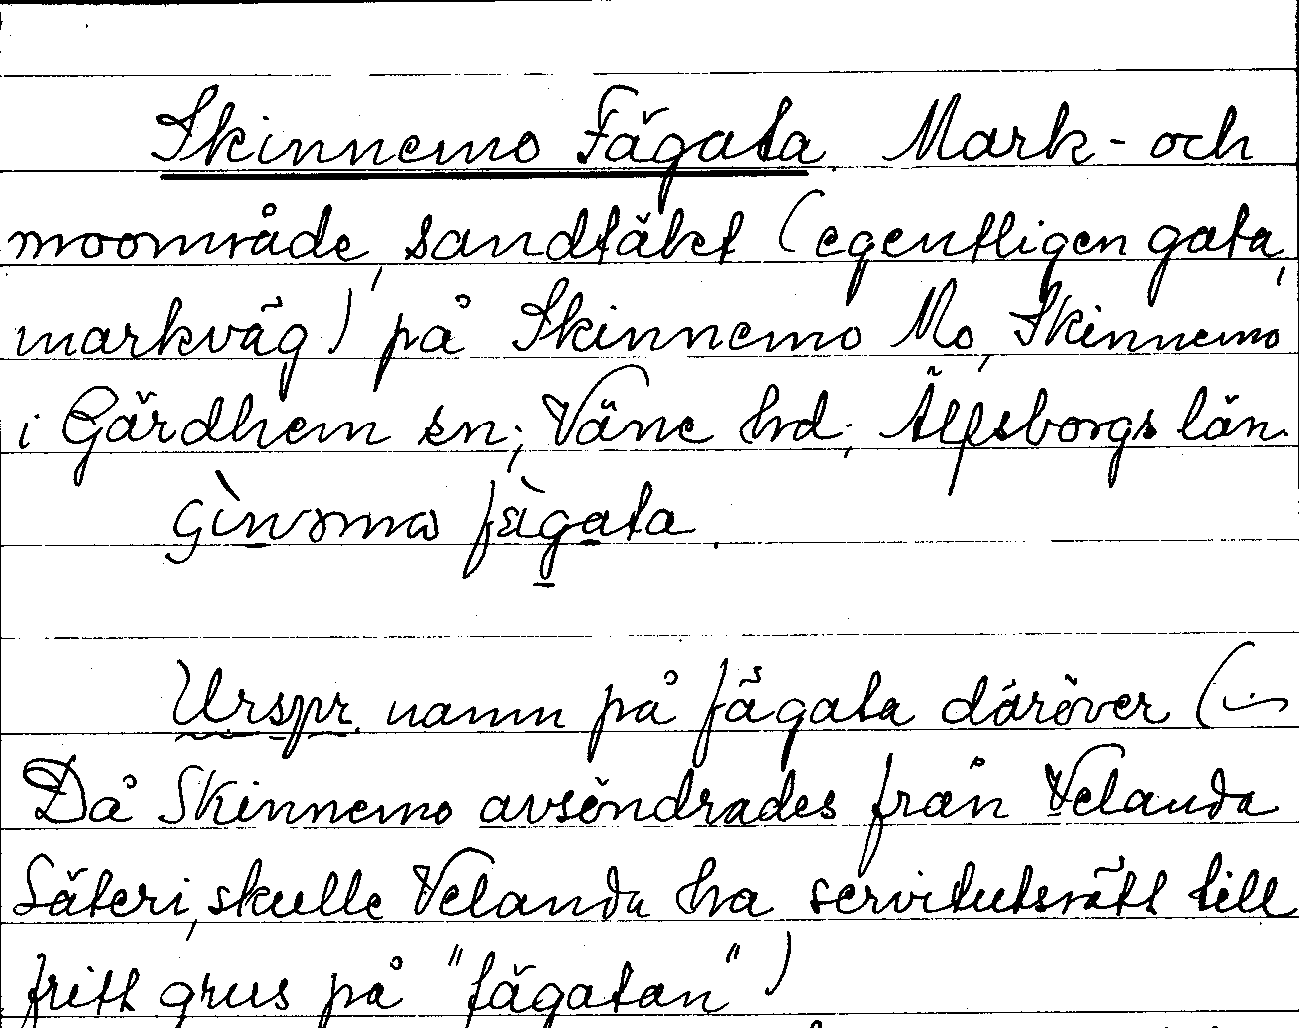 Skinnemo Fägata. Mark- och
moområde, sandtäkt (egentligen gata,
markväg) på Skinnemo Mo, Skinnemo
i Gärdhem sn; Väne hd; Älfsborgs län.
fägata.
Urspr. namn på fägata däröver (
Då Skinnemo avsöndrades från Velanda
Säteri, skulle Velanda ha servitutsrätt till
fritt grus på "fägatan")